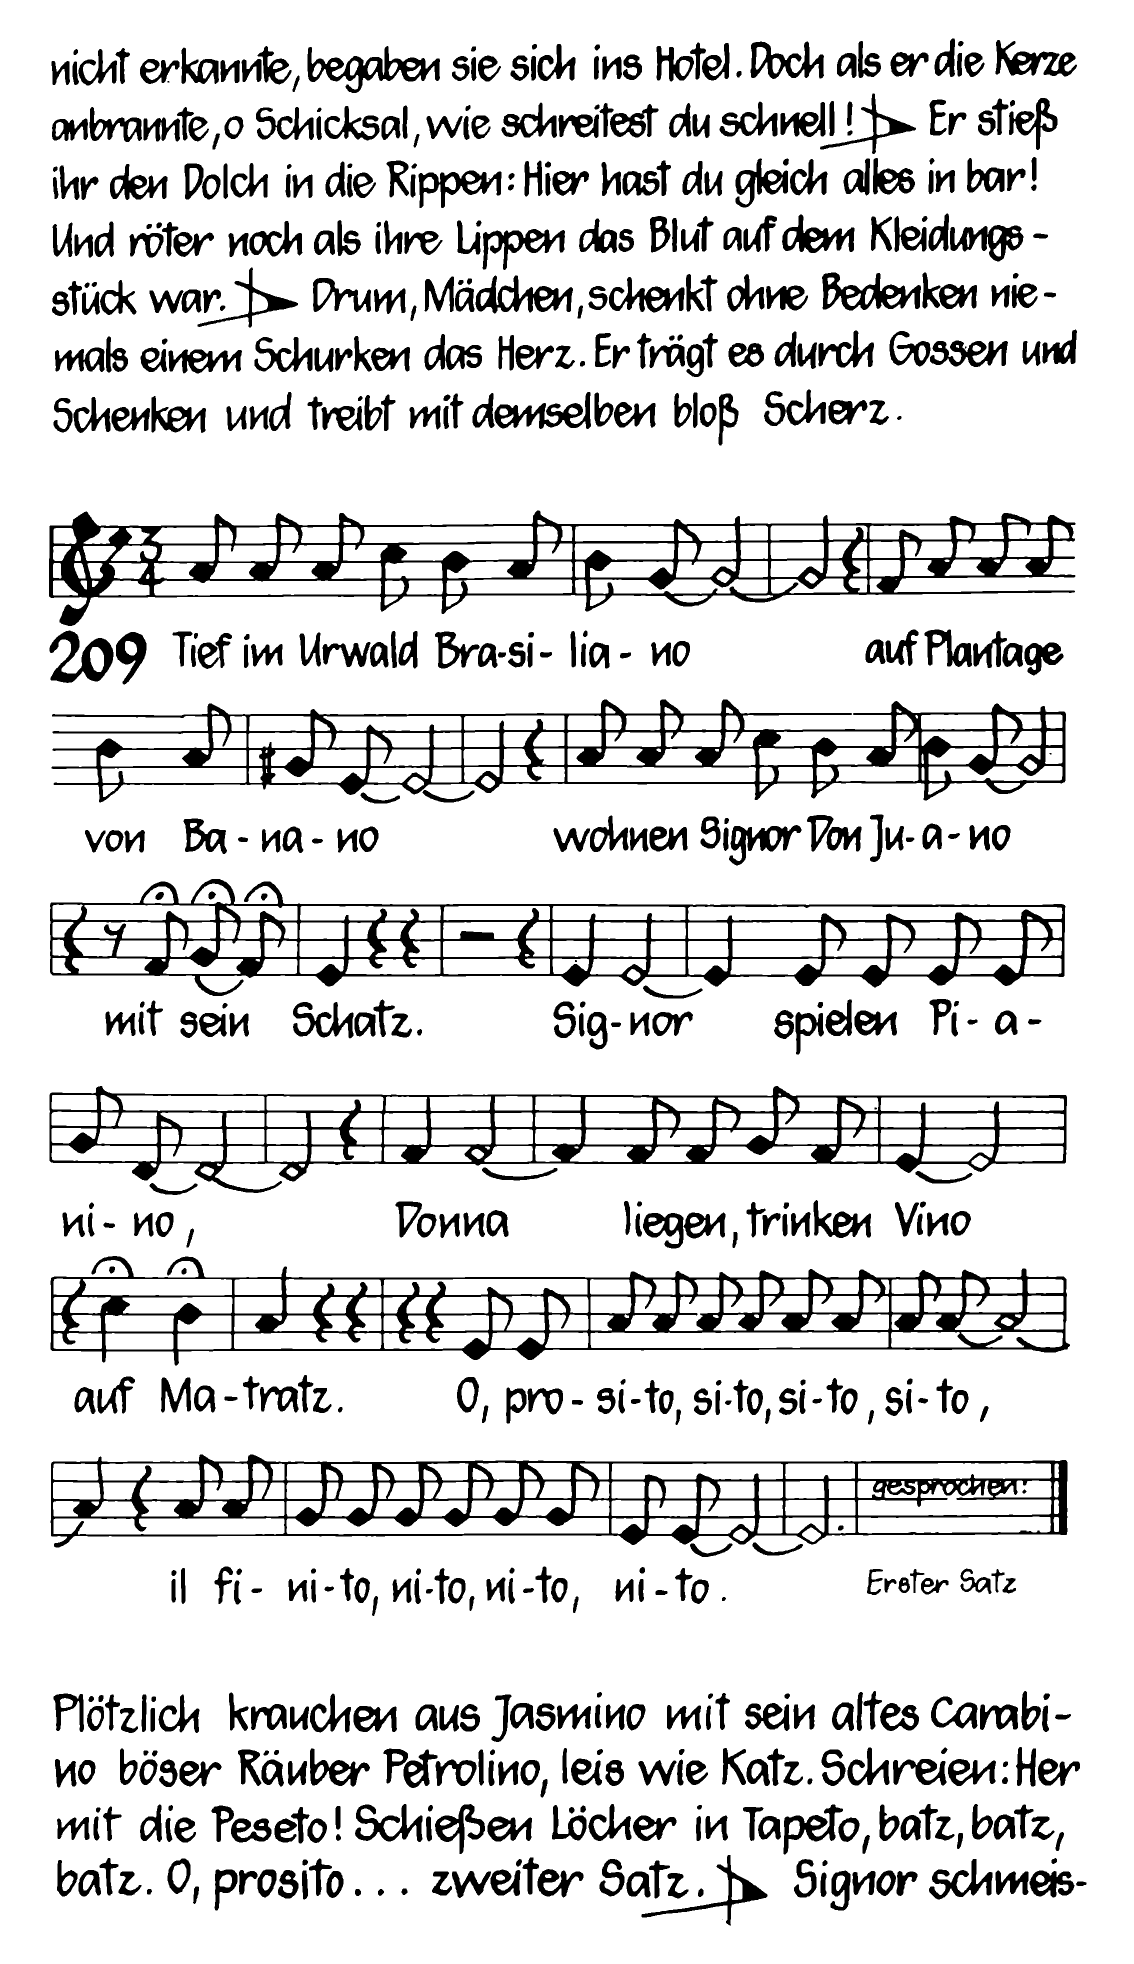 nicht erkannte, begaben sie sich ins Hotel. Doch als er die Kerze
anbrannte, o Schicksal, wie schreitest du schnell! Er stieß
ihr den Dolch in die Rippen: Hier hast du gleich alles in bar!
Und röter noch als ihre Lippen das Blut auf dem Kleidungs-
stück war. Drum, Mädchen, schenkt ohne Bedenken nie-
mals einem Schurken das Herz. Er trägt es durch Gossen und
Schenken und treibt mit demselben bloß Scherz.
3
4
209 Tief im Urwald Bra-si-lia-no auf Plantage
von Ba-na-no wohnen Signor Don Ju-a-no
mit sein Schatz. Sig-nor spielen Pi-a-
ni-no, Donna liegen, trinken Vino
auf Ma-tratz. O, pro-si-to, si-to, si-to, si-to,
gesprochen:
il fi-ni-to, ni-to, ni-to, ni-to. Erster Satz
Plötzlich krauchen aus Jasmino mit sein altes Carabi-
no böser Räuber Petrolino, leis wie Katz. Schreien: Her
mit die Peseto! Schießen Löcher in Tapeto, batz, batz,
batz. O, prosito... zweiter Satz. Signor schmeis-